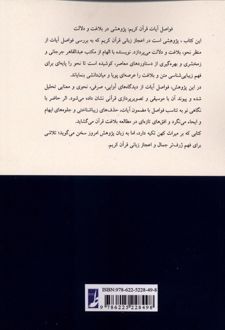 فواصل آیات قرآن کریم: پژوهشی در بلاغت و دلالت
این کتاب، پژوهشی است در اعجاز زبانی قرآن کریم که به بررسی فواصل آیات از
منظر نحو، بلاغت و دلالت می‌پردازد. نویسنده با الهام از مکتب عبدالقاهر جرجانی و
زمخشری و بهره‌گیری از دستاوردهای معاصر، کوشیده است تا نحو را پایه‌ای برای
فهم زیبایی‌شناسی متن و بلاغت را عرصه‌ای پویا و میان‌دانشی بنمایاند.
در این پژوهش، فواصل آیات از دیدگاه‌های آوایی، صرفی، نحوی و معنایی تحلیل
شده و پیوند آن با موسیقی و تصویرپردازی قرآنی نشان داده می‌شود. اثر حاضر با
نگاهی نو به تناسب فواصل با مضمون آیات، حذف‌های زیباشناختی و جلوه‌های ابهام
و ایحاء می‌نگرد و افق‌های تازه‌ای در مطالعه بلاغت قرآن می‌گشاید.
کتابی که بر میراث کهن تکیه دارد، اما به زبان پژوهش امروز سخن می‌گوید؛ تلاشی
برای فهم ژرف‌تر جمال و اعجاز زبانی قرآن کریم.
ISBN: 978-622-5228-49-8
9 786225 228498